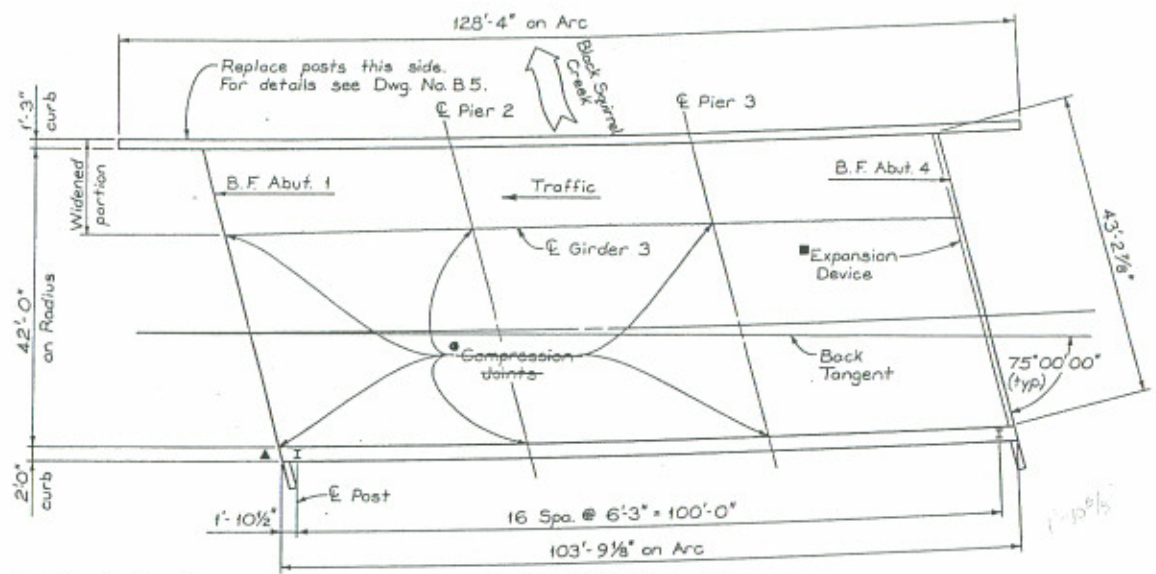 128'-4" on Arc
Replace posts this side.
For details see Dwg. No. B5.
Black Squirrel
Creek
℄ Pier 2
℄ Pier 3
1'-3"
curb
Widened
portion
B.F. Abut. 1
Traffic
B.F. Abut. 4
℄ Girder 3
■Expansion
Device
43'-2⅞"
42'-0"
on Radius
Compression
Joints
Back
Tangent
75°00'00"
(typ)
2'0"
curb
▲
℄ Post
1'-10½"
16 Spa. @ 6'-3" = 100'-0"
103'-9⅛" on Arc